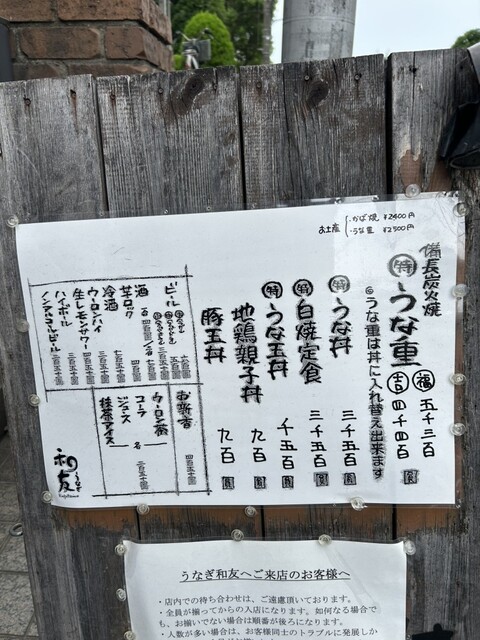 お土産 ・かば焼 ¥2400円
・うな重 ¥2500円
備長炭火焼
特 うな重 福 五千三百
吉 四千四百 圓
◎うな重は丼に入れ替え出来ます
特 うな丼 三千五百 圓
特 白焼定食 三千五百 圓
特 うな玉丼 千五百 圓
地鶏親子丼 九百 圓
豚玉丼 九百 圓
ビール
酒
芋ロック
冷酒
ウーロンハイ
生レモンサワー
ハイボール
ノンアルコールビール
お新香
ウーロン茶
コーラ
ジュース
抹茶アイス
和友
うなぎ和友へご来店のお客様へ
・店内での待ち合わせは、ご遠慮頂いております。
・全員が揃ってからの入店になります。如何なる場合で
も、お揃いでない場合は順番が後ろになります。
・人数が多い場合は、お客様同士のトラブルに発展しか